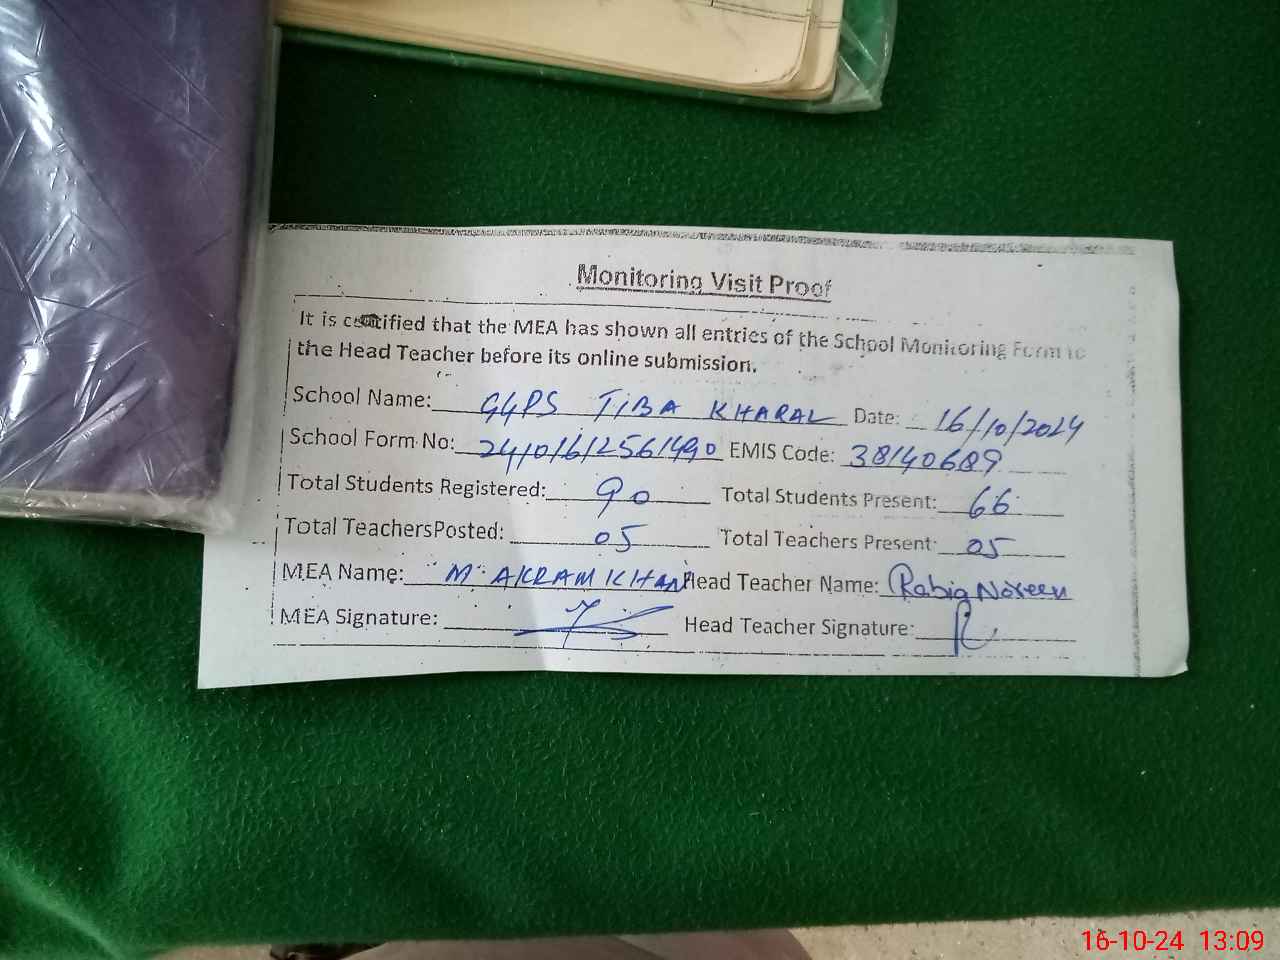 Monitoring Visit Proof
It is certified that the MEA has shown all entries of the School Monitoring Form to
the Head Teacher before its online submission.
School Name: GGPS TIBA KHARAL Date: 16/10/2024
School Form No: 24101612561490 EMIS Code: 38140689
Total Students Registered: 90 Total Students Present: 66
Total TeachersPosted: 05 Total Teachers Present: 05
MEA Name: M. AKRAM KHAN Head Teacher Name: Rabia Noreen
MEA Signature: Head Teacher Signature:
16-10-24 13:09